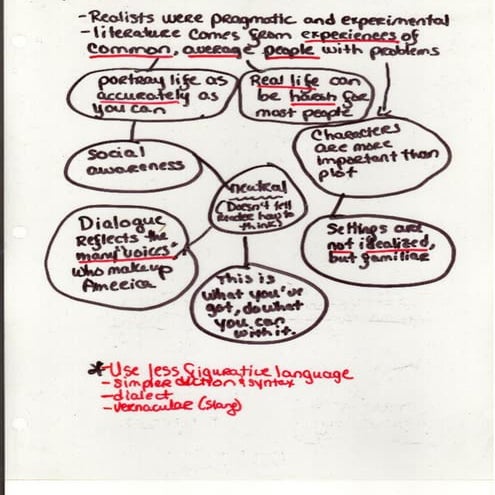 -Realists were pragmatic and experimental
-literature comes from experiences of
common, average people with problems
portray life as
accurately as
you can
Real life can
be harsh for
most people
Characters
are more
important than
plot
Social
awareness
neutral
(Doesn't tell
Reader how to
think)
Dialogue
Reflects "the
many voices"
who makeup
America
Settings are
not idealized,
but familiar
This is
what you've
got, do what
you can
with it.
*Use less figurative language
-simpler diction & syntax
-dialect
-vernacular (slang)